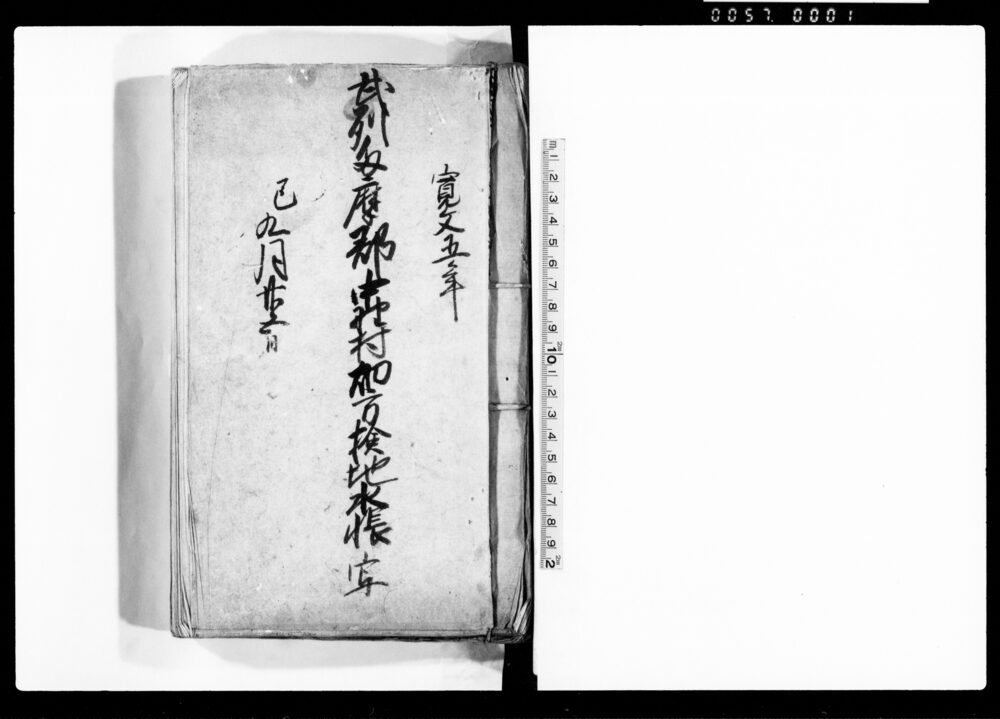 0057. 0001
寛文五年
武州多摩郡中神村畑方検地水帳写
巳九月廿日
m 1 2 3 4 5 6 7 8 9 10 1 2 3 4 5 6 7 8 9 2